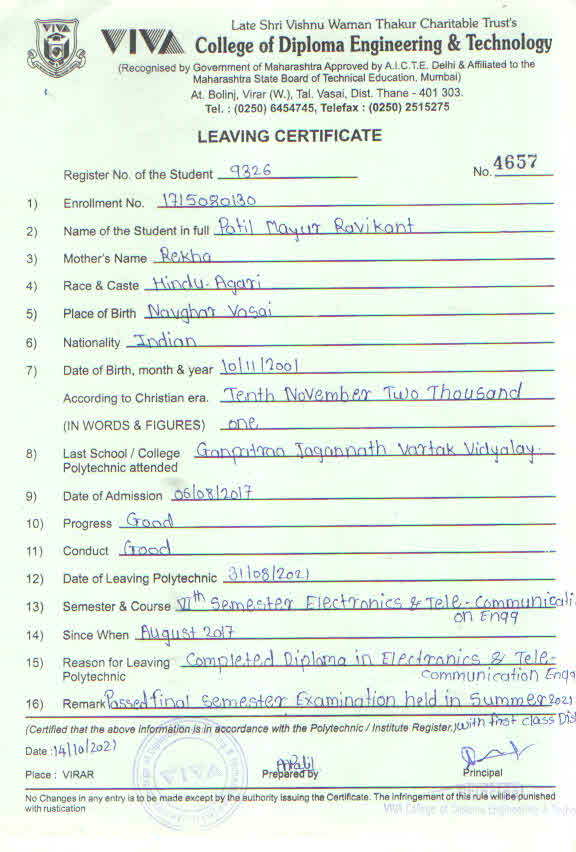 Late Shri Vishnu Waman Thakur Charitable Trust's
VIVA College of Diploma Engineering & Technology
(Recognised by Government of Maharashtra Approved by A.I.C.T.E. Delhi & Affiliated to the
Maharashtra State Board of Technical Education, Mumbai)
At. Bolinj, Virar (W.), Tal. Vasai, Dist. Thane - 401 303.
Tel. : (0250) 6454745, Telefax : (0250) 2515275
LEAVING CERTIFICATE
Register No. of the Student 9326 No. 4657
1) Enrollment No. 1715080130
2) Name of the Student in full Patil Mayur Ravikant
3) Mother's Name Rekha
4) Race & Caste Hindu-Agari
5) Place of Birth Navghar Vasai
6) Nationality Indian
7) Date of Birth, month & year 10/11/2001
According to Christian era. Tenth November Two Thousand
(IN WORDS & FIGURES) one
8) Last School / College Jagannath Vartak Vidyalay.
Polytechnic attended
9) Date of Admission 05/08/2017
10) Progress Good
11) Conduct Good
12) Date of Leaving Polytechnic 31/08/2021
13) Semester & Course VIth Semester Electronics & Tele-Communicati
on Engg
14) Since When August 2017
15) Reason for Leaving Completed Diploma in Electronics & Tele-
Polytechnic Communication Engg
16) Remark Passed final semester Examination held in Summer 2021
(Certified that the above information is in accordance with the Polytechnic / Institute Register.) with first class Dis
Date : 14/10/2021
Place : VIRAR Prepared by Principal
No Changes in any entry is to be made except by the authority issuing the Certificate. The infringement of this rule will be punished
with rustication
VIVA College of Diploma Engineering & Techno
VIVA